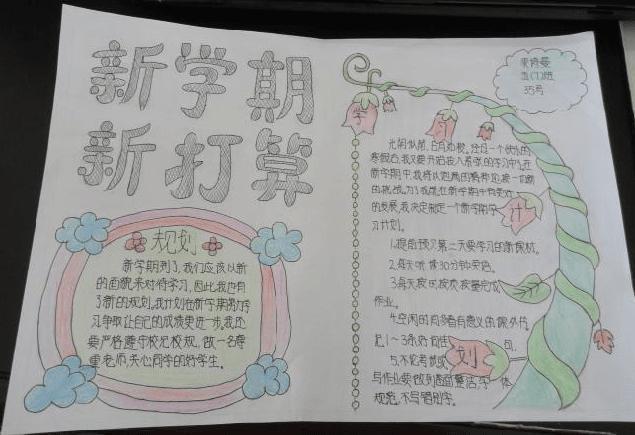 新学期
新打算
规划
新学期到了,我们应该以新
的面貌来对待学习,因此,我也有
了新的规划,我计划在新学期努力学
习,争取让自己的成绩更进一步,我还
要严格遵守校纪校规,做一名尊
重老师,关心同学的好学生。
五(1)班
35号
学
习
计
划
光阴似箭,日月如梭。经过一个愉快的
寒假后,我又要开始投入紧张的学习中,在
新学期中,我将以饱满的精神迎接一切新
的挑战。为了我能在新学期中有更好
的发展,我决定制定一个新学期学
习计划。
1.提前预习第二天要学习的新课材。
2.每天听读30分钟英语。
3.每天按时按质按量完成
作业。
4.空闲的时多看有意义的课外书,
记1~3条好词佳句。
5.不论考试或
写作业要做到卷面整洁,字体
规范,不写错别字。